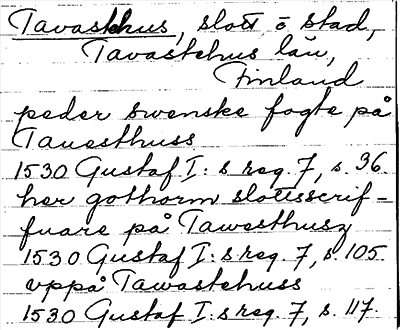 Tavastehus, slott o stad,
Tavastehus län,
Finland
peder swenske fogte på
Tauesthuss
1530 Gustaf I:s reg. 7, s. 36.
her gothorm slottsscrif-
fuare på Tawesthusz
1530 Gustaf I:s reg. 7, s. 105.
vppå Tawastehuss
1530 Gustaf I:s reg. 7, s. 117.